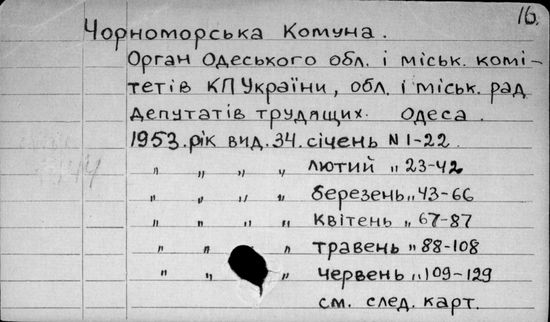 16.
Чорноморська Комуна.
Орган Одеського обл. і міськ. комі-
тетів КП України, обл. і міськ. рад
депутатів трудящих. Одеса.
1953.рік вид. 34. січень N 1-22.
" " " " лютий " 23-42
" " " " березень " 43-66
" " " " квітень " 67-87
" " " травень " 88-108
" " " червень " 109-129
см. след. карт.